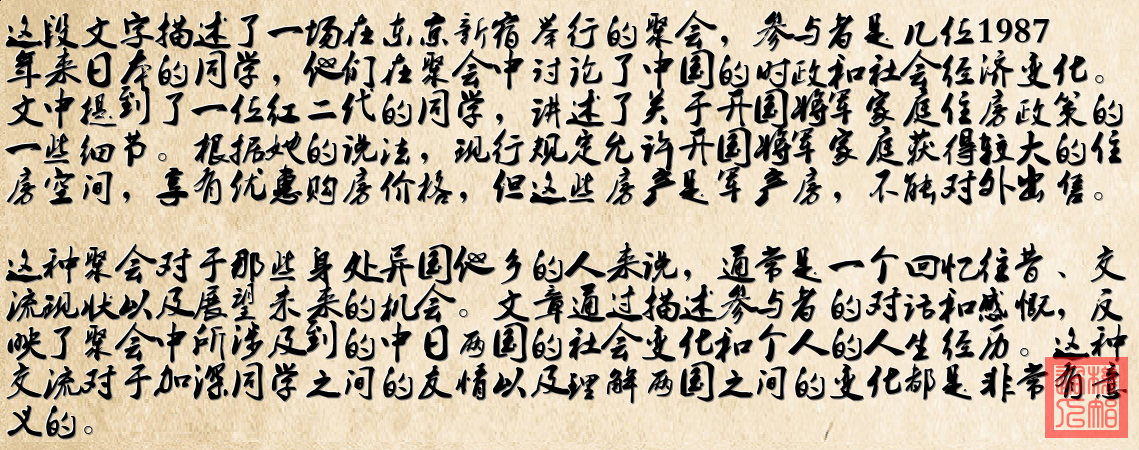 这段文字描述了一场在东京新宿举行的聚会，参与者是几位1987
年来日本的同学，他们在聚会中讨论了中国的时政和社会经济变化。
文中提到了一位红二代的同学，讲述了关于开国将军家庭住房政策的
一些细节。根据她的说法，现行规定允许开国将军家庭获得较大的住
房空间，享有优惠购房价格，但这些房产是军产房，不能对外出售。
这种聚会对于那些身处异国他乡的人来说，通常是一个回忆往昔、交
流现状以及展望未来的机会。文章通过描述参与者的对话和感慨，反
映了聚会中所涉及到的中日两国的社会变化和个人的人生经历。这种
交流对于加深同学之间的友情以及理解两国之间的变化都是非常有意
义的。